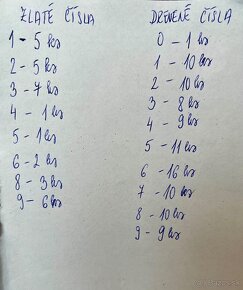 ZLATÉ ČÍSLA
1 - 5 ks
2 - 5 ks
3 - 7 ks
4 - 1 ks
5 - 1 ks
6 - 2 ks
8 - 3 ks
9 - 6 ks
DREVENÉ ČÍSLA
0 - 1 ks
1 - 10 ks
2 - 10 ks
3 - 8 ks
4 - 9 ks
5 - 11 ks
6 - 16 ks
7 - 10 ks
8 - 10 ks
9 - 9 ks